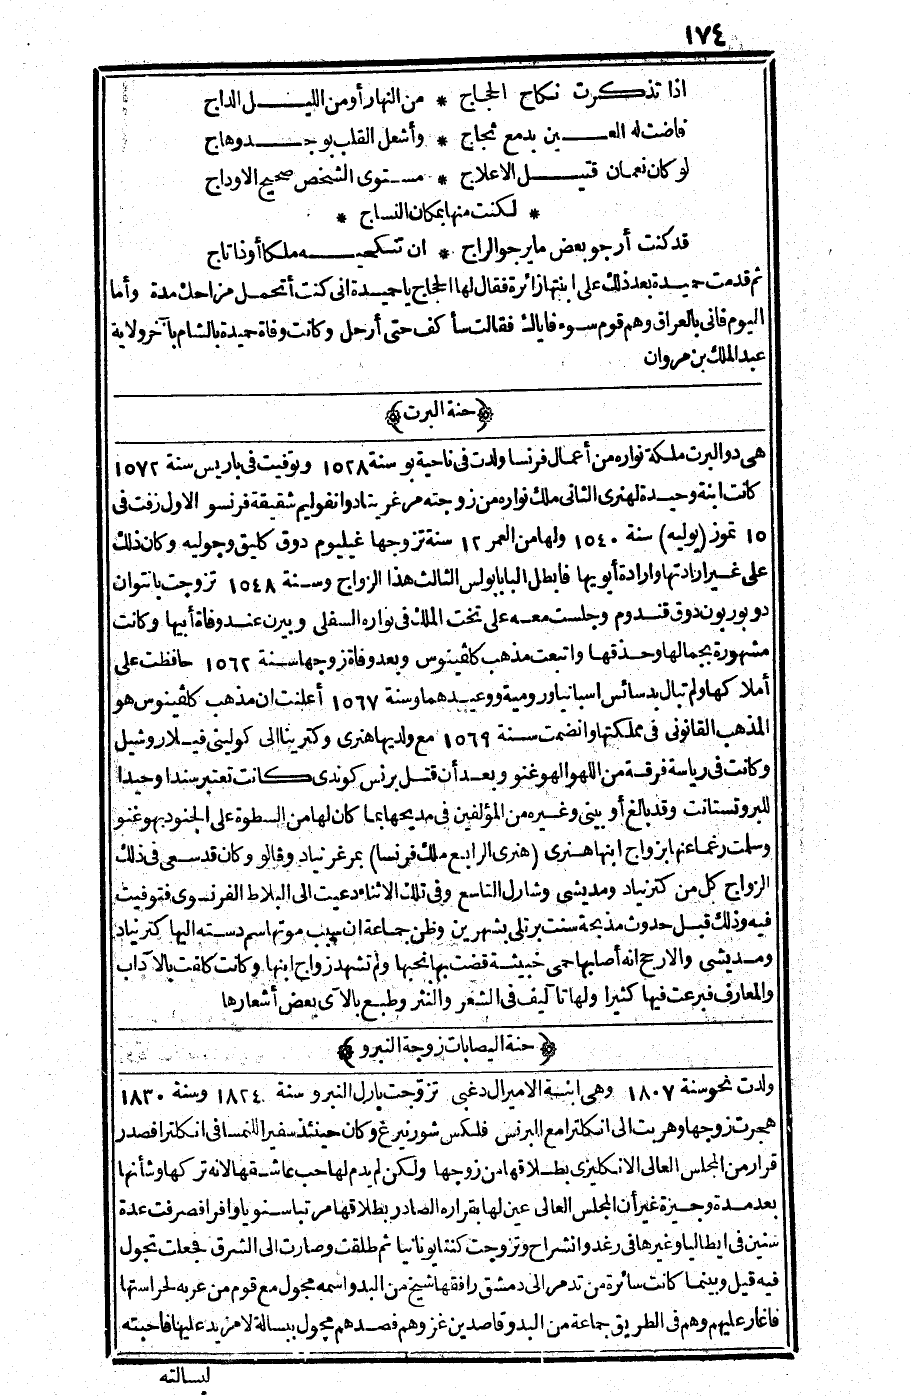 ١٧٤
اذا تذكرت نكاح الحجاج * من النهار أو من الليل الداج
فاضت له العين بدمع ثجاج * وأشعل القلب بوجد وهاج
لو كان نعمان قتيل الاعلاج * مستوى الشخص صحيح الاوداج
* لكنت منها بمكان النساج *
قد كنت أرجو بعض ما يرجو الراج * ان تنكحيه ملكا أو ذا تاج
ثم قدمت حميدة بعد ذلك على ابنتها زائرة فقال لها الحجاج ياحميدة انى كنت أتحمل مزاحك مدة وأما
اليوم فانى بالعراق وهم قوم سوء فاياك فقالت سأ كف حتى أرحل وكانت وفاة حميدة بالشام بآخر ولاية
عبد الملك بن مروان
﴿حنة البرت﴾
هى دو البرت ملكة نواره من أعمال فرنسا ولدت فى ناحية بو سنة ١٥٢٨ وتوفيت فى باريس سنة ١٥٧٢
كانت ابنة وحيدة لهنرى الثانى ملك نواره من زوجته مرغريتا دوانفوليم شقيقة فرنسو الاول زفت فى
١٥ تموز (يوليه) سنة ١٥٤٠ ولها من العمر ١٢ سنة تزوجها غيليوم دوق كليق وجوليه وكان ذلك
على غير ارادتها وارادة أبويها فابطل البابا بولس الثالث هذا الزواج وسنة ١٥٤٨ تزوجت بانتوان
دو بوربون دوق قندوم وجلست معه على تخت الملك فى نواره السفلى وبيرن عند وفاة أبيها وكانت
مشهورة بجمالها وحذقها واتبعت مذهب كلڤينوس وبعد وفاة زوجها سنة ١٥٦٢ حافظت على
أملا كها ولم تبال بدسائس اسبانيا ورومية ووعيدهما وسنة ١٥٦٧ أعلنت ان مذهب كلڤينوس هو
المذهب القانونى فى مملكتها وانضمت سنة ١٥٦٩ مع ولديها هنرى وكترينا الى كولينى فى لاروشيل
وكانت فى رياسة فرقة من اللهو الهوغنو وبعد أن قتل برنس كوندى كانت تعتبر سندا وحيدا
للبروتستانت وقد بالغ أو بينى وغيره من المؤلفين فى مديحها بما كان لها من السطوة على الجنود بهوغنو
وسلمت رغما عنها بزواج ابنها هنرى (هنرى الرابع ملك فرنسا) بمرغريتاد وڤالو وكان قد سعى فى ذلك
الزواج كل من كترنياد ومديشى وشارل التاسع وفى تلك الاثناء دعيت الى البلاط الفرنسوى فتوفيت
فيه وذلك قبل حدوث مذبحة سنت برتلى بشهرين وظن جماعة ان سبب موتها سم دسته اليها كترنياد
ومديشى والارجح انه أصابها حمى خبيثة قضت بها نحبها ولم تشهد زواج ابنها وكانت كلفت بالآداب
والمعارف فبرعت فيها كثيرا ولها تا آليف فى الشعر والنثر وطبع بالآى بعض أشعارها
﴿حنة اليصابات زوجة النبرو﴾
ولدت نحو سنة ١٨٠٧ وهى ابنة الاميرال دغبى تزوجت بارل النبرو سنة ١٨٢٤ وسنة ١٨٣٠
هجرت زوجها وهربت الى انكلترا مع البرنس فلكس شورنبرغ وكان حينئذ سفيرا للنمسا فى انكلترا فصدر
قرار من المجلس العالى الانكليزى بطلاقها من زوجها ولكن لم يدم لها حب عاشقها لانه تركها وشأنها
بعد مدة وجيزة غير أن المجلس العالى عين لها بقراره الصادر بطلاقها مرتبا سنويا وافرا فصرفت عدة
سنين فى ايطاليا وغيرها فى رغد وانشراح وتزوجت كنتا يونانيا ثم طلقت وصارت الى الشرق فجعلت تجول
فيه قيل وبينما كانت سائرة من تدمر الى دمشق رافقها شيخ من البدو اسمه مجول مع قوم من عربه لحراستها
فاغار عليهم وهم فى الطريق جماعة من البدو قاصدين غزوهم فصدهم مجول ببسالة لا مزيد عليها فاحبته
لبسالته